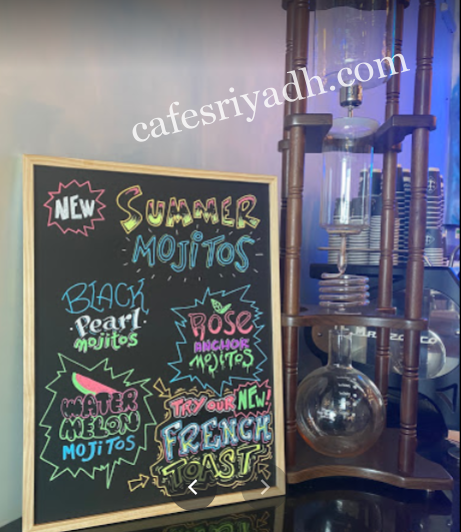 cafesriyadh.com
NEW
SUMMER
MOJITOS
BLACK
Pearl
mojitos
ROSE
ANCHOR
MOJITOS
WATER
MELON
MOJITOS
TRY OUR NEW!
FRENCH
TOAST